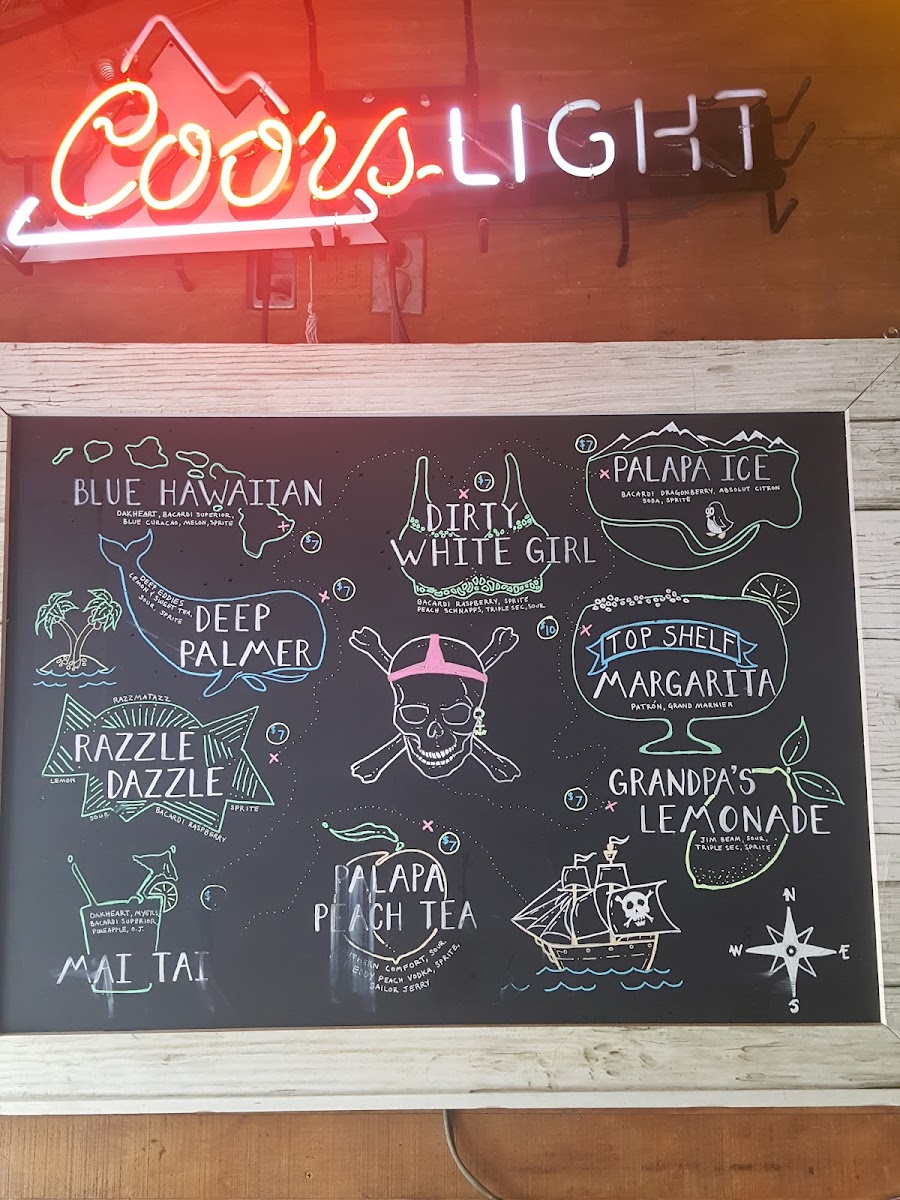 Coors LIGHT
BLUE HAWAIIAN
OAKHEART, BACARDI SUPERIOR,
BLUE CURACAO, MELON, SPRITE
$7
DIRTY
WHITE GIRL
$7
BACARDI RASPBERRY, SPRITE
PEACH SCHNAPPS, TRIPLE SEC, SOUR
$7
PALAPA ICE
BACARDI DRAGONBERRY, ABSOLUT CITRON
SODA, SPRITE
DEEP EDDIES
LEMON & SWEET TEA,
SOUR, SPRITE
DEEP
PALMER
$7
$10
TOP SHELF
MARGARITA
PATRÓN, GRAND MARNIER
RAZZMATAZZ
RAZZLE
DAZZLE
LEMON
SOUR
BACARDI RASPBERRY
SPRITE
$7
GRANDPA'S
LEMONADE
$7
JIM BEAM, SOUR,
TRIPLE SEC, SPRITE
OAKHEART, MYERS,
BACARDI SUPERIOR,
PINEAPPLE, O.J.
MAI TAI
$
PALAPA
PEACH TEA
$7
COMFORT, SOUR
PEACH VODKA, SPRITE,
SAILOR JERRY
N
W E
S